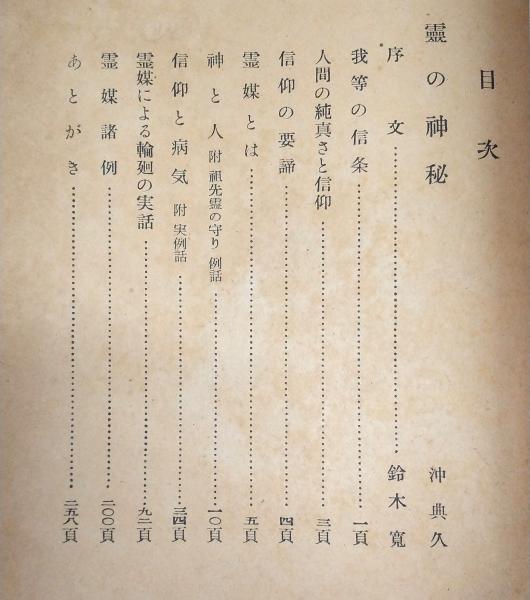 目次
靈の神秘 沖典久
序文 鈴木寬
我等の信条 一頁
人間の純真さと信仰 三頁
信仰の要諦 四頁
霊媒とは 五頁
神と人 附 祖先霊の守り 例話 一〇頁
信仰と病気 附 実例話 三四頁
霊媒による輪廻の実話 九二頁
霊媒諸例 二〇〇頁
あとがき 二五八頁